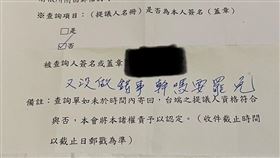 ※查詢項目：（提議人名冊）是否為本人簽名（蓋章）
□是
☑否
被查詢人簽名或蓋章
又沒做錯事 幹嘛要罷免
備註：查詢單如未於時間內寄回，台端之提議人資格符合
與否，本會將本諸權責予以認定。（收件截止時間
以截止日郵戳為準）